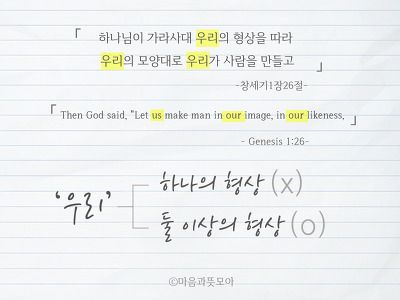 「 하나님이 가라사대 우리의 형상을 따라
우리의 모양대로 우리가 사람을 만들고 」
-창세기1장26절-
「 Then God said, "Let us make man in our image, in our likeness, 」
- Genesis 1:26-
하나의 형상 (x)
'우리'
둘 이상의 형상 (o)
©마음과뜻모아